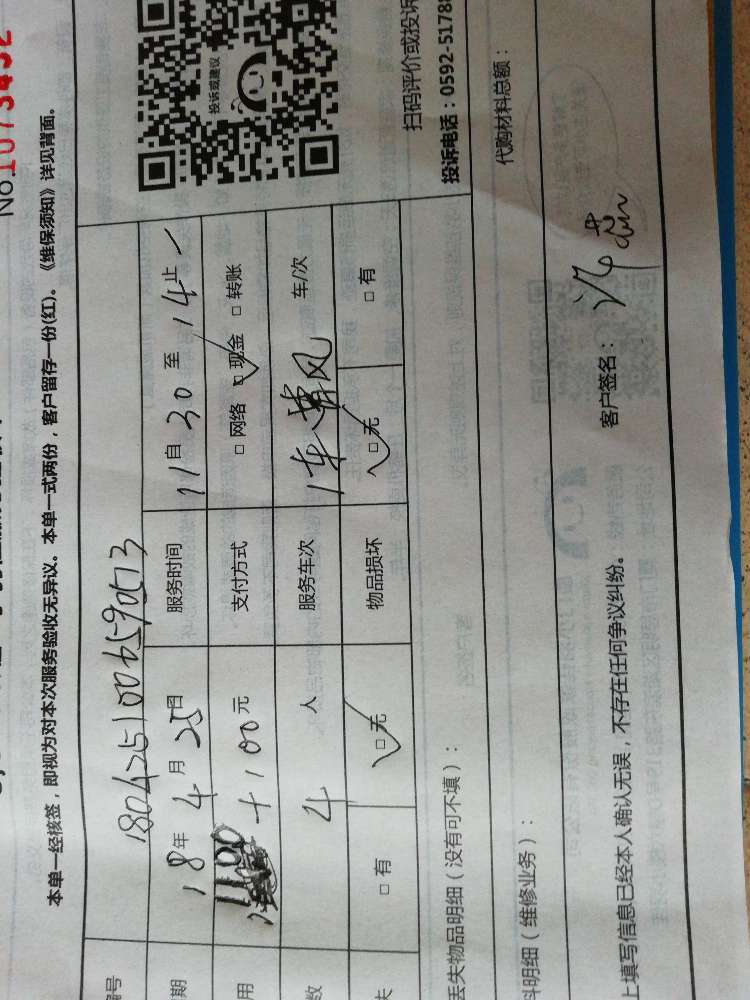 No.1073432
本单一经核签，即视为对本次服务验收无异议。本单一式两份，客户留存一份(红)。《维保须知》详见背面。
编号 1804251006590513
期 18年4月25日 服务时间 11自30至14止
用 1100+100元 支付方式 □网络 □现金 □转账
数 4人 服务车次 1车 车/次
失 □有 □无 物品损坏 □无 □有
投诉或建议
扫码评价或投诉
投诉电话：0592-51788
丢失物品明细（没有可不填）：
料明细（维修业务）： 代购材料总额：
上填写信息已经本人确认无误，不存在任何争议纠纷。 客户签名：